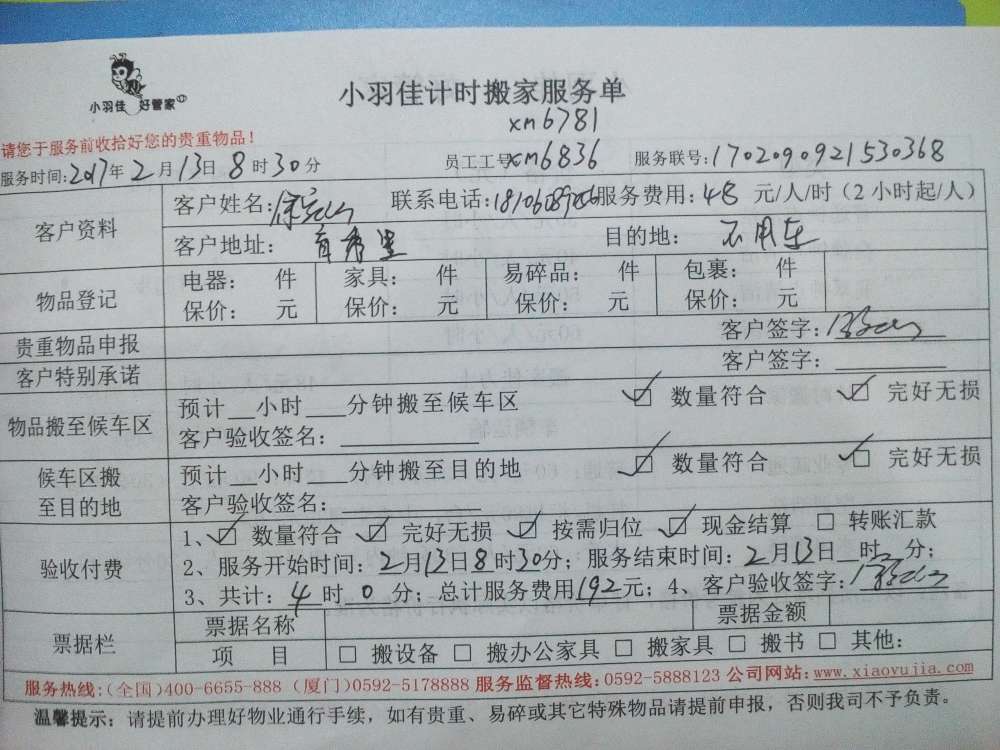 小羽佳 好管家
小羽佳计时搬家服务单
xm6781
请您于服务前收拾好您的贵重物品!
服务时间:2017年2月13日8时30分 员工工号:xm6836 服务联号:1702090921530368
客户资料 客户姓名: 联系电话: 服务费用:48元/人/时(2小时起/人)
客户地址: 育秀里 目的地: 不用车
物品登记 电器: 件 家具: 件 易碎品: 件 包裹: 件
保价: 元 保价: 元 保价: 元 保价: 元
贵重物品申报 客户签字:
客户特别承诺 客户签字:
物品搬至候车区 预计__小时___分钟搬至候车区 ☑ 数量符合 ☑ 完好无损
客户验收签名:
候车区搬至目的地 预计__小时___分钟搬至目的地 ☑ 数量符合 ☑ 完好无损
客户验收签名:
验收付费 1、☑ 数量符合 ☑ 完好无损 ☑ 按需归位 ☑ 现金结算 □ 转账汇款
2、服务开始时间:2月13日8时30分;服务结束时间:2月13日__时__分;
3、共计:4时0分;总计服务费用192元;4、客户验收签字:
票据栏 票据名称 票据金额
项 目 □ 搬设备 □ 搬办公家具 □ 搬家具 □ 搬书 □ 其他:
服务热线:(全国)400-6655-888 (厦门)0592-5178888 服务监督热线:0592-5888123 公司网站:www.xiaoyujia.com
温馨提示:请提前办理好物业通行手续,如有贵重、易碎或其它特殊物品请提前申报,否则我司不予负责。